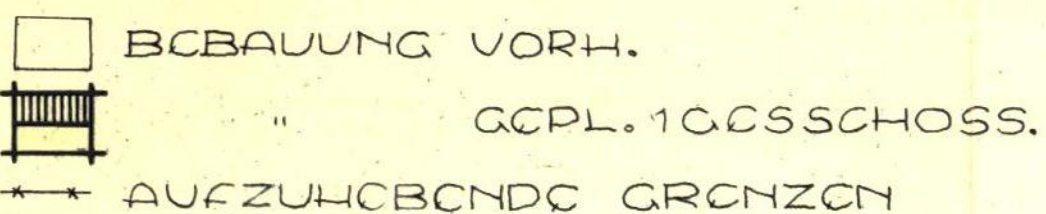 BEBAUUNG VORH.
" GEPL. 1 GESSCHOSS.
AUFZUHEBENDE GRENZEN